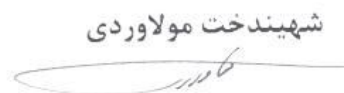 شهیندخت مولاوردی